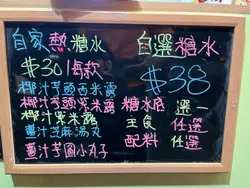 自家熱糖水
$30/每款
椰汁芋頭西米露
椰汁芋頭紫米露
椰汁紫米露
薑汁芝麻湯丸
薑汁芋圓小丸子
自選糖水
$38
糖水底 選一
主食 任選
配料 任選